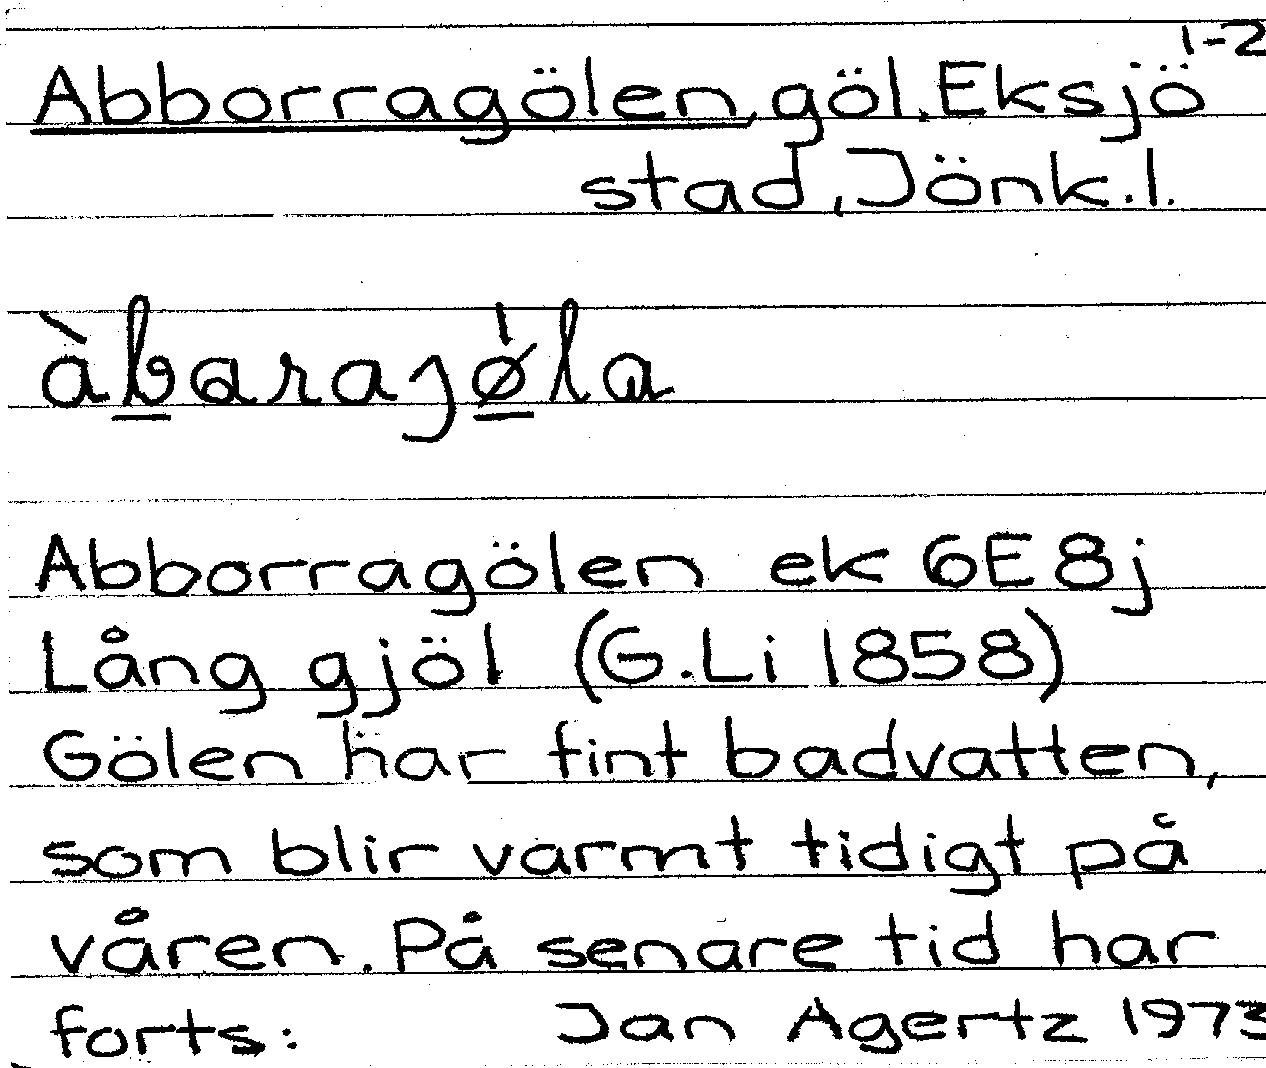 1-2
Abborragölen, göl. Eksjö
stad, Jönk. l.
àbaraȷǿla
Abborragölen ek 6E8j
Lång gjöl (G.Li 1858)
Gölen har fint badvatten,
som blir varmt tidigt på
våren. På senare tid har
forts: Jan Agertz 1973